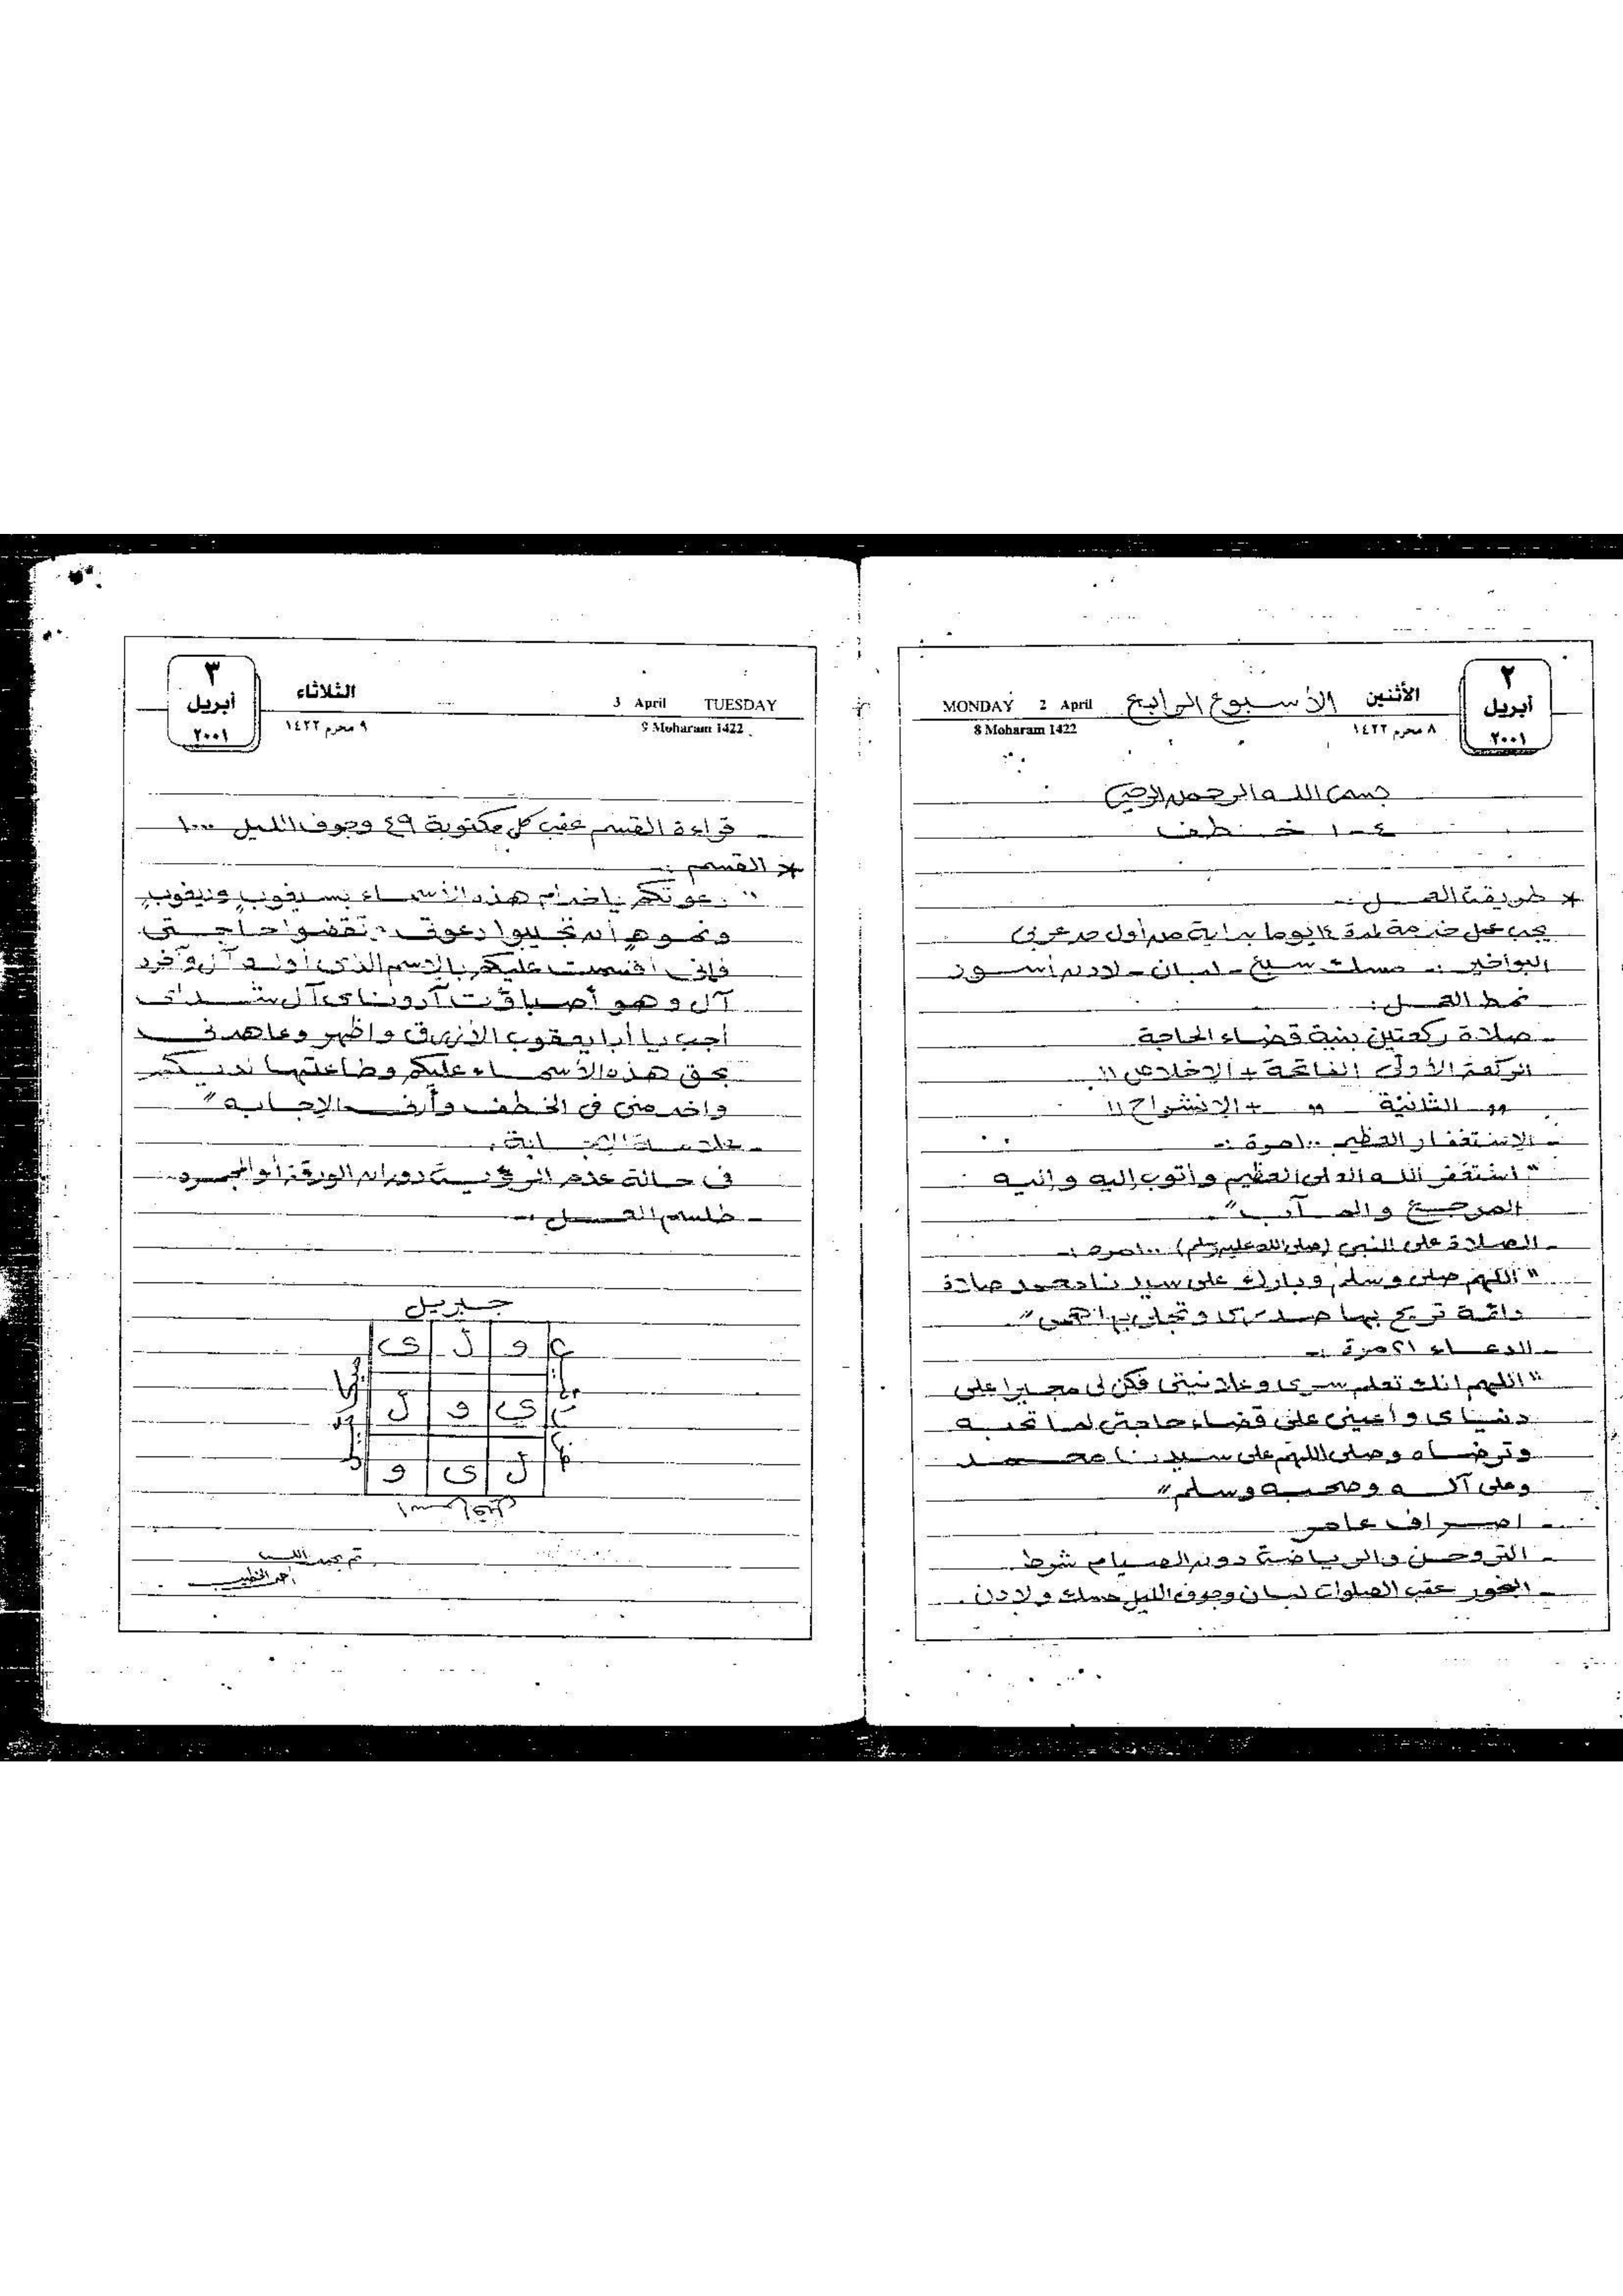 ٢
أبريل
٢٠٠١
الأثنين
٨ محرم ١٤٢٢
الأسبوع الرابع
MONDAY 2 April
8 Moharam 1422
بسم الله الرحمن الرحيم
٤-١ خطف
* طريقة العمل :-
يجب عمل خدمة لمدة ١٤ يوما بداية من أول حد عربى
البواخير :- مسك سيح - لبان - لادن أسود
نمط العمل :-
- صلاة ركعتين بنية قضاء الحاجة
الركعة الأولى الفاتحة + الإخلاص ١١
،، الثانية ،، + الإنشراح ١١
- الإستغفار العظيم ١٠٠ مرة :-
" استغفر الله العلى العظيم وأتوب إليه وإليه
المرجع والمآب "
- الصلاة على النبى (صلى الله عليه وسلم) ١٠٠ مرة :-
" اللهم صلى وسلم وبارك على سيدنا محمد صلاة
دائمة تريح بها صدرى وتجلى بها همى "
- الدعاء ٢١ مرة :-
" اللهم انك تعلم سرى وعلانيتى فكن لى مجيرا على
دنياى وأعينى على قضاء حاجتى لما تحبه
وترضاه وصلى اللهم على سيدنا محمد
وعلى آله وصحبه وسلم "
- اصراف عامر
- التروحن والرياضة دون الصيام شرط
- البخور عقب الصلوات لبان وجوف الليل مسك ولادن .
٣
أبريل
٢٠٠١
الثلاثاء
٩ محرم ١٤٢٢
3 April TUESDAY
9 Moharam 1422
- قراءة القسم عقب كل مكتوبة ٤٩ وجوف الليل ١٠٠٠
* القسم :-
" دعوتكم ياخدام هذه الأسماء
أن تجيبوا دعوتى وتقضوا حاجتى
فإنى اقسمت عليكم بالإسم الذى أوله آل وآخره
آل وهو أصباؤت آدوناى آل شداى
أجب يا أبا يعقوب الأزرق واظهر وعاهدنى
بحق هذه الأسماء عليكم وطاعتها لديكم
واخدمنى فى الخطف وأرنى الإجابه "
- علامة الإجابة :
فى حالة عدم الرؤية دوران الورقة أو المجسرد
- طلسم العمل :-
جبريل
ع و ل ى
ى و ل
ل ى و
تم بحمد الله
أحمد الخطيب